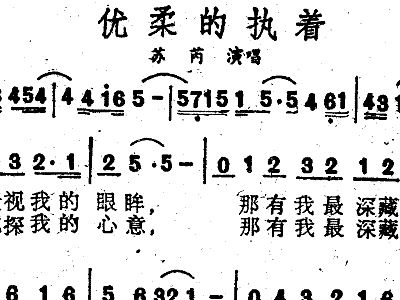 优柔的执着
苏芮 演唱
454 | 4 4 1 6 5 - | 5 7 1 5 1 5·5 4 6 1 | 4 3
3 2·1 | 2 5·5 - | 0 1 2 3 2 1 2
视我的眼眸， 那有我最深藏
探我的心意， 那有我最深藏
6 1 6 | 5 6 3 2 1 - | 0 4 3 2 1 6